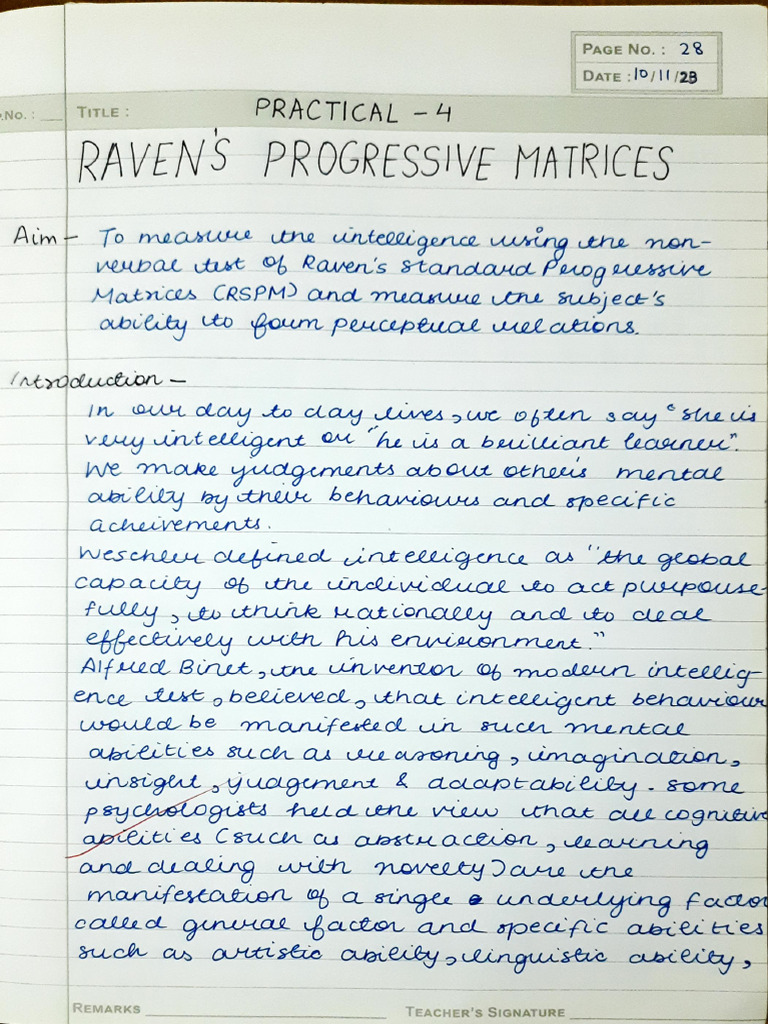 PAGE NO. : 28
DATE : 10/11/23
.No. : __ TITLE : PRACTICAL - 4
RAVEN'S PROGRESSIVE MATRICES
Aim - To measure the intelligence using the non-
verbal test of Raven's Standard Progressive
Matrices (RSPM) and measure the subject's
ability to form perceptual relations.
Introduction -
In our day to day lives, we often say "she is
very intelligent or "he is a brilliant learner".
We make judgements about other's mental
ability by their behaviours and specific
acheivements.
Weschler defined intelligence as "the global
capacity of the individual to act purpouse-
fully, to think rationally and to deal
effectively with his environment."
Alfred Binet, the inventor of modern intellig-
ence test, believed, that intelligent behaviour
would be manifested in such mental
abilities such as reasoning, imagination,
insight, judgement & adaptability. Some
psychologists held the view that all cognitive
abilities (such as abstraction, learning
and dealing with novelty) are the
manifestation of a single underlying factor
called general factor and specific abilities
such as artistic ability, linguistic ability,
REMARKS TEACHER'S SIGNATURE